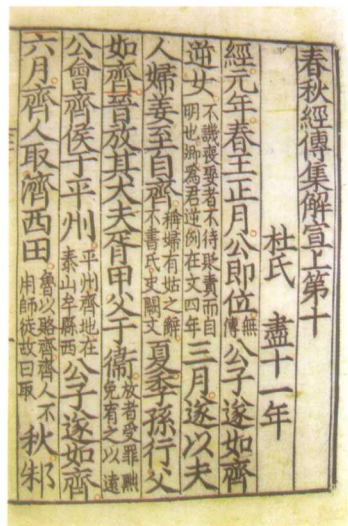 春秋經傳集解宣上第十
杜氏 盡十一年
經元年春王正月公即位無傳公子遂如齊
逆女不譏喪娶者不待貶責而自明也卿爲君逆例在文四年三月遂以夫
人婦姜至自齊稱婦有姑之辭不書氏史闕文夏季孫行父
如齊晉放其大夫胥甲父于衛放者受罪黜免宥之以遠
公會齊侯于平州平州齊地在泰山牟縣西公子遂如齊
六月齊人取濟西田魯以賂齊齊人不用師徒故曰取秋邾